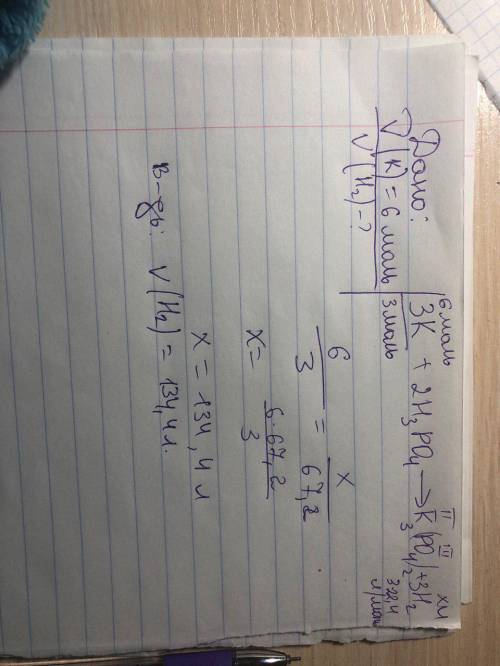 Дано:
ν(K) = 6 моль
V(H₂) - ?
6 моль x л
3K + 2H₃PO₄ → K₃(PO₄)₂ + 3H₂
II III
3 моль 3·22,4
л/моль
6/3 = x/67,2
x = 6·67,2/3
x = 134,4 л
В-дь: V(H₂) = 134,4 л.